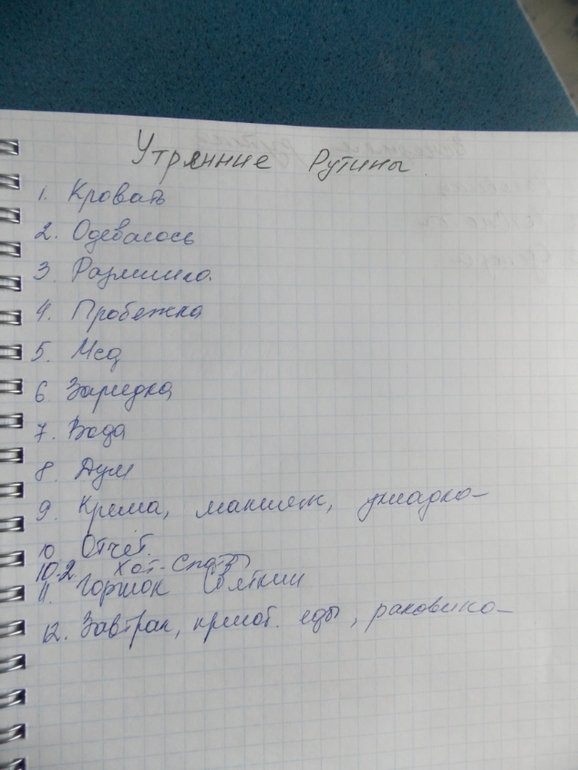 Утренние Рутины
1. Кровать
2. Одеваюсь
3. Разминка.
4. Пробежка
5.
6. Зарядка
7. Вода
8. Душ
9. Крема, макияж, укладка
10. Отчёт.
10.2. Хот. Спать
11. Горшок
12. Завтрак, пригот. еды, раковина